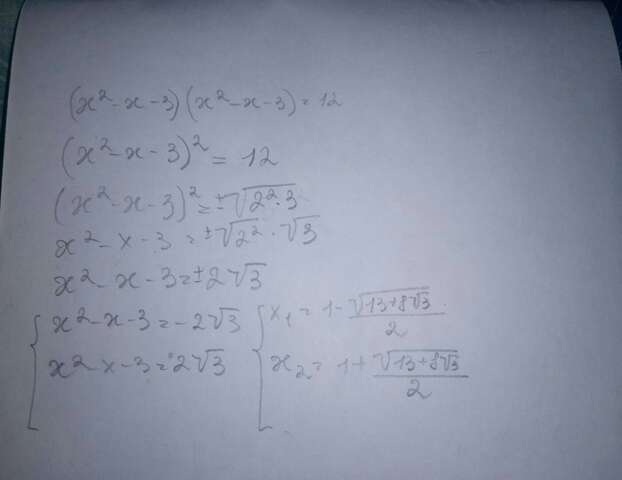 (x² - x - 3)(x² - x - 3) = 12
(x² - x - 3)² = 12
(x² - x - 3)² = ±√(2²·3)
x² - x - 3 = ±√2² · √3
x² - x - 3 = ±2√3
{ x² - x - 3 = -2√3
x² - x - 3 = 2√3
{ x₁ = 1 - √(13+8√3) / 2
x₂ = 1 + √(13+8√3) / 2